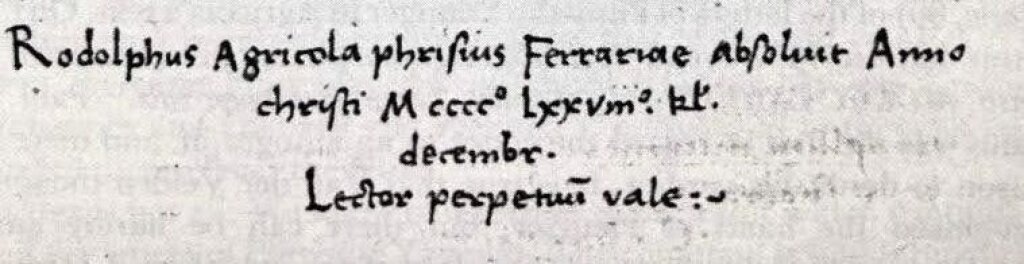 Rodolphus Agricola phrisius Ferrariae Absoluit Anno
christi M cccc° Lxxviii°. kl̄.
decembr.
Lector perpetuū vale :~